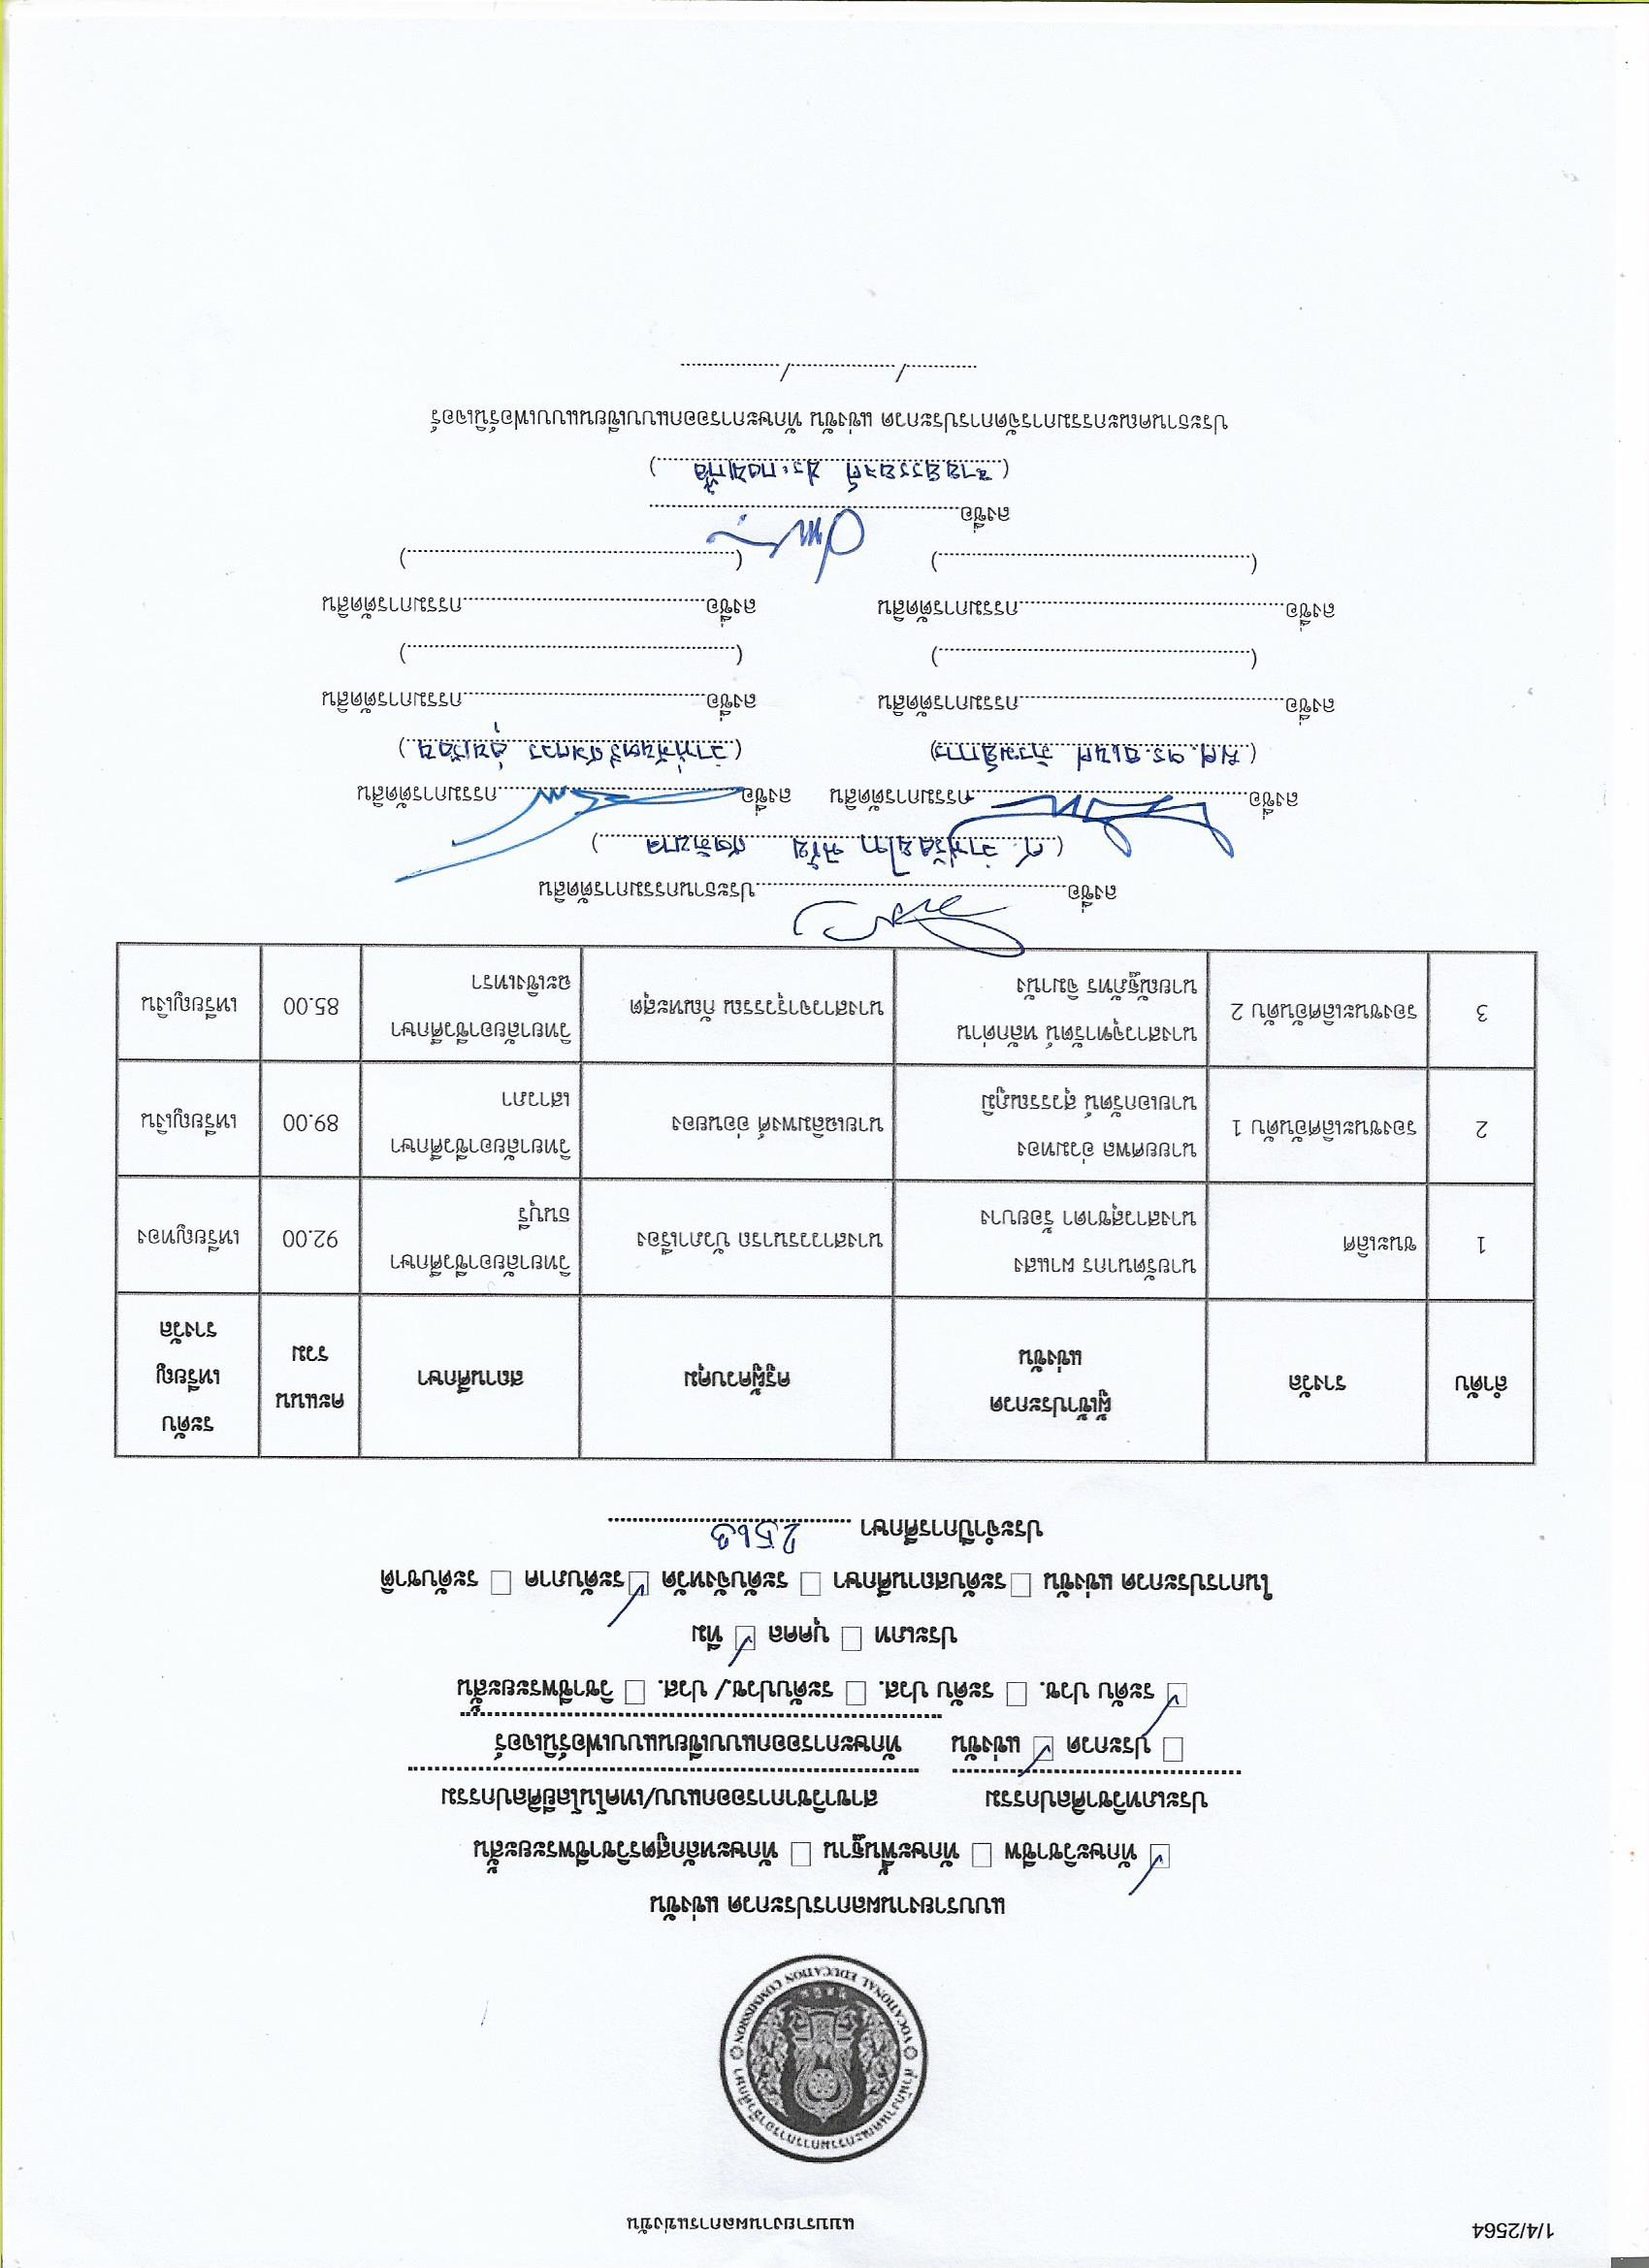 1/4/2564
แบบรายงานผลการแข่งขัน
VOCATIONAL EDUCATION COMMISSION
แบบรายงานผลการประกวด แข่งขัน
☑ ทักษะวิชาชีพ ☐ ทักษะพื้นฐาน ☐ ทักษะหลักสูตรวิชาชีพระยะสั้น
ประเภทวิชาศิลปกรรม สาขาวิชาการออกแบบ/เทคโนโลยีศิลปกรรม
☐ ประกวด ☑ แข่งขัน ทักษะการออกแบบเขียนแบบเฟอร์นิเจอร์
☑ ระดับ ปวช. ☐ ระดับ ปวส. ☐ ระดับปวช/ ปวส. ☐ วิชาชีพระยะสั้น
ประเภท ☐ บุคคล ☑ ทีม
ในการประกวด แข่งขัน ☐ ระดับสถานศึกษา ☐ ระดับจังหวัด ☑ ระดับภาค ☐ ระดับชาติ
ประจำปีการศึกษา 2563
ลำดับ รางวัล ผู้เข้าประกวด แข่งขัน ครูผู้ควบคุม สถานศึกษา คะแนน รวม ระดับ เหรียญ รางวัล
1 ชนะเลิศ นายรัตนากร ผาแสง นางสาวสุชาดา ร้อยบาง นางสาววรรนารถ บัวภาเรือง วิทยาลัยอาชีวศึกษา ธนบุรี 92.00 เหรียญทอง
2 รองชนะเลิศอันดับ 1 นายยศพล อ่วมทอง นายเอกรัตน์ สุวรรณภูมิ นายเฉลิมพงศ์ อ่อนยอง วิทยาลัยอาชีวศึกษา เสาวภา 89.00 เหรียญเงิน
3 รองชนะเลิศอันดับ 2 นางสาวจุฑารัตน์ หลักด่าน นายณัฐภัทร จิมานัง นางสาวจารุวรรณ กัณฑะสุต วิทยาลัยอาชีวศึกษา ฉะเชิงเทรา 85.00 เหรียญเงิน
ลงชื่อ ประธานกรรมการตัดสิน
ลงชื่อ กรรมการตัดสิน ลงชื่อ กรรมการตัดสิน
ลงชื่อ กรรมการตัดสิน ลงชื่อ กรรมการตัดสิน
( ) ( )
ลงชื่อ กรรมการตัดสิน ลงชื่อ กรรมการตัดสิน
( ) ( )
ลงชื่อ
ประธานคณะกรรมการจัดการประกวด แข่งขัน ทักษะการออกแบบเขียนแบบเฟอร์นิเจอร์
/ /